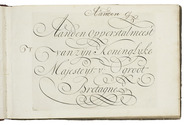 Aan den Opperstalmeest
van zyn Koninglyke
Majesteyt v. Groot
Bretagne